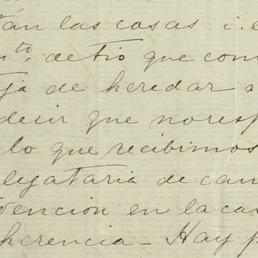 tán las cosas i. e
to. de tio que com
ja de heredar a
decir que no resp
lo que recibimos
legataria de can
vencion en la cas
herencia - Hay p